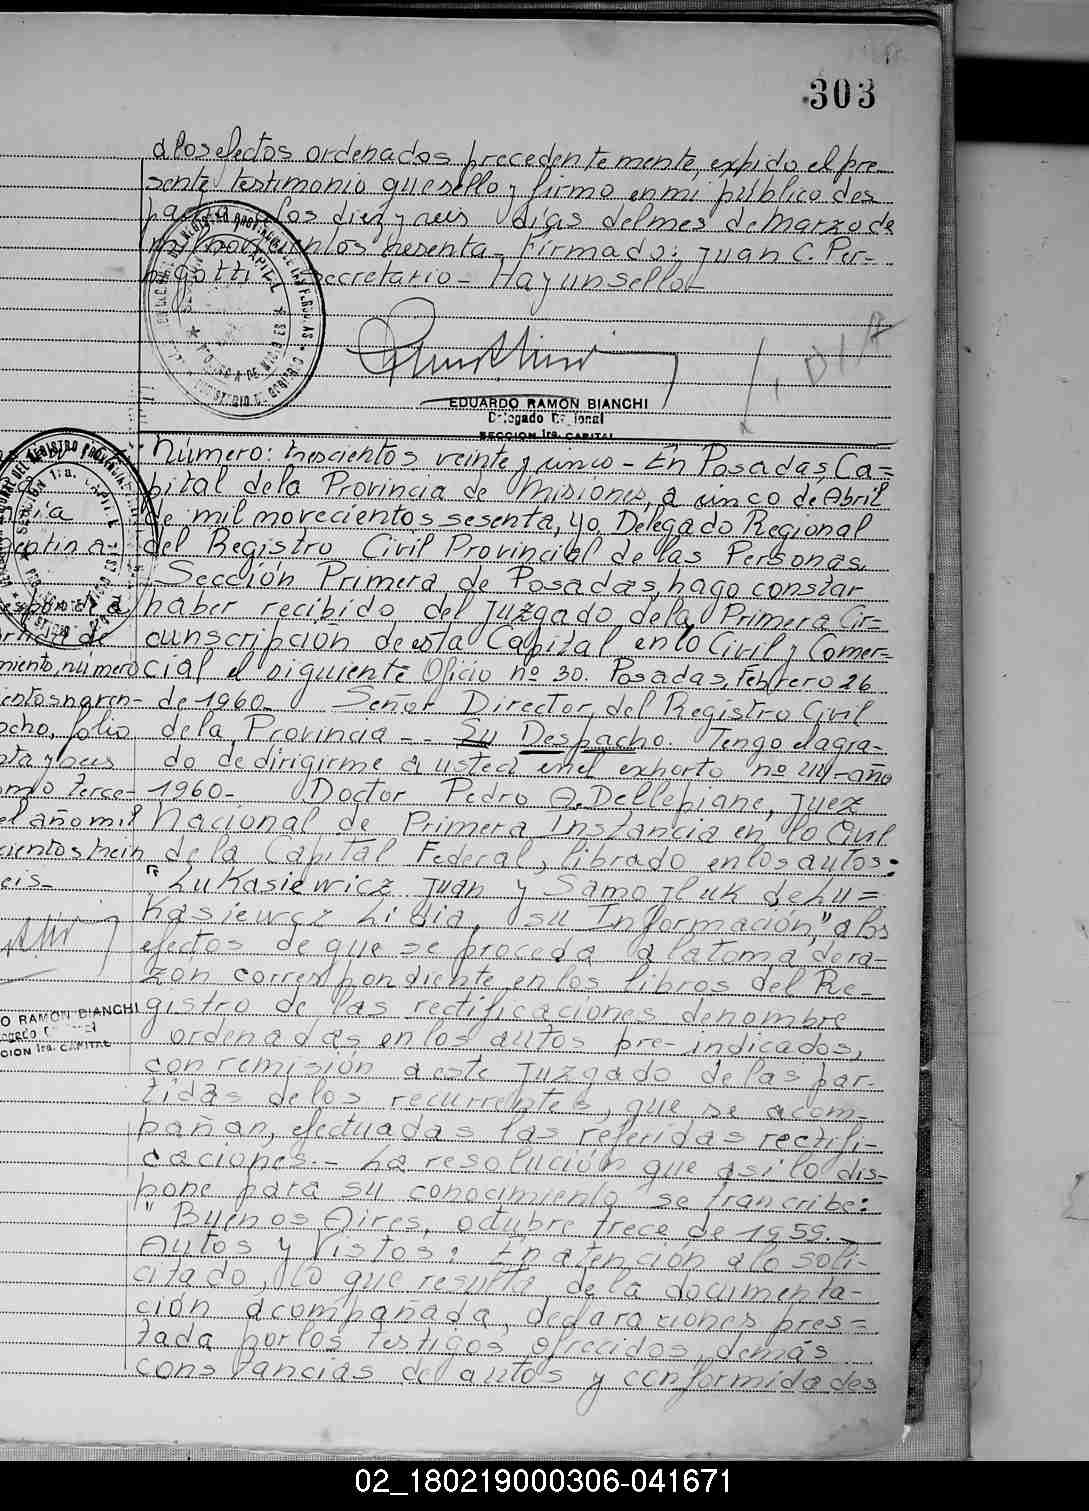 303
a los efectos ordenados precedentemente, expido el pre-
sente testimonio que sello y firmo en mi público des
los diez y seis días del mes de Marzo de
mil novecientos sesenta - Firmado: Juan C. Per-
Secretario - Hay un sello -
EDUARDO RAMON BIANCHI
Delegado Regional
SECCION 1ra. CAPITAL
Número: trescientos veinte y cinco - En Posadas, Ca=
pital de la Provincia de Misiones, a cinco de Abril
de mil novecientos sesenta, yo, Delegado Regional
del Registro Civil Provincial de las Personas,
Sección Primera de Posadas, hago constar
haber recibido del Juzgado de la Primera Cir=
cunscripción de esta Capital en lo Civil y Comer=
cial el siguiente Oficio nº 30. Posadas, Febrero 26
de 1960 - Señor Director del Registro Civil
de la Provincia - - Su Despacho. Tengo el agra-
do de dirigirme a usted en el exhorto nº - año
1960 - Doctor Pedro A. Dellepiane, Juez
Nacional de Primera Instancia en lo Civil
de la Capital Federal, librado en los autos:
"Lukasiewicz Juan y Samojluk de Lu=
kasiewcz Lidia, su Información," a los
efectos de que se proceda a la toma de ra-
zón correspondiente en los libros del Re-
gistro de las rectificaciones de nombre
ordenadas en los autos pre-indicados,
con remisión a este Juzgado de las par-
tidas de los recurrentes, que se acom-
pañan, efectuadas las referidas rectifi-
caciones. - La resolución que así lo dis-
pone para su conocimiento se transcribe:
"Buenos Aires, octubre trece de 1959. -
Autos y Vistos: En atención a lo soli-
citado, lo que resulta de la documenta-
ción acompañada, declaraciones pres=
tada por los testigos ofrecidos, demás
constancias de autos y conformidades
miento, número
ocho, folio
el año mil
eis -
O RAMON BIANCHI
CION 1ra. CAPITAL
02_180219000306-041671